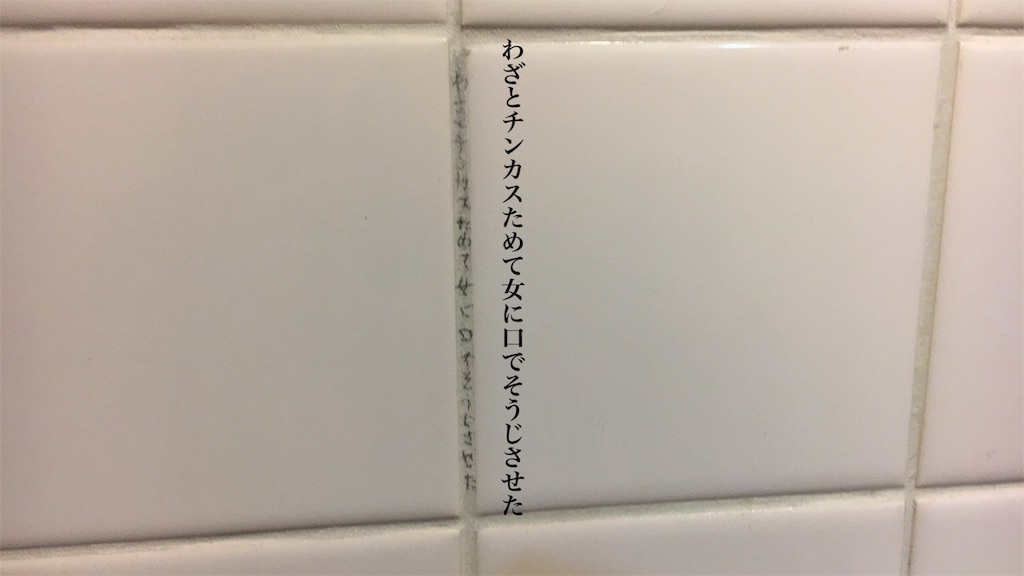 わざとチンカスためて女に口でそうじさせた
わざとチンカスためて女に口でそうじさせた